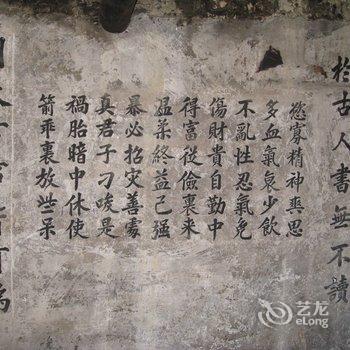 於古人書無不讀
慾寡精神爽思
多血氣衰少飲
不亂性忍氣免
傷財貴自勤中
得富從儉裏來
温柔終益己强
暴必招灾善處
真君子刁唆是
禍胎暗中休使
箭乖裏放些呆
艺龙
eLong.com